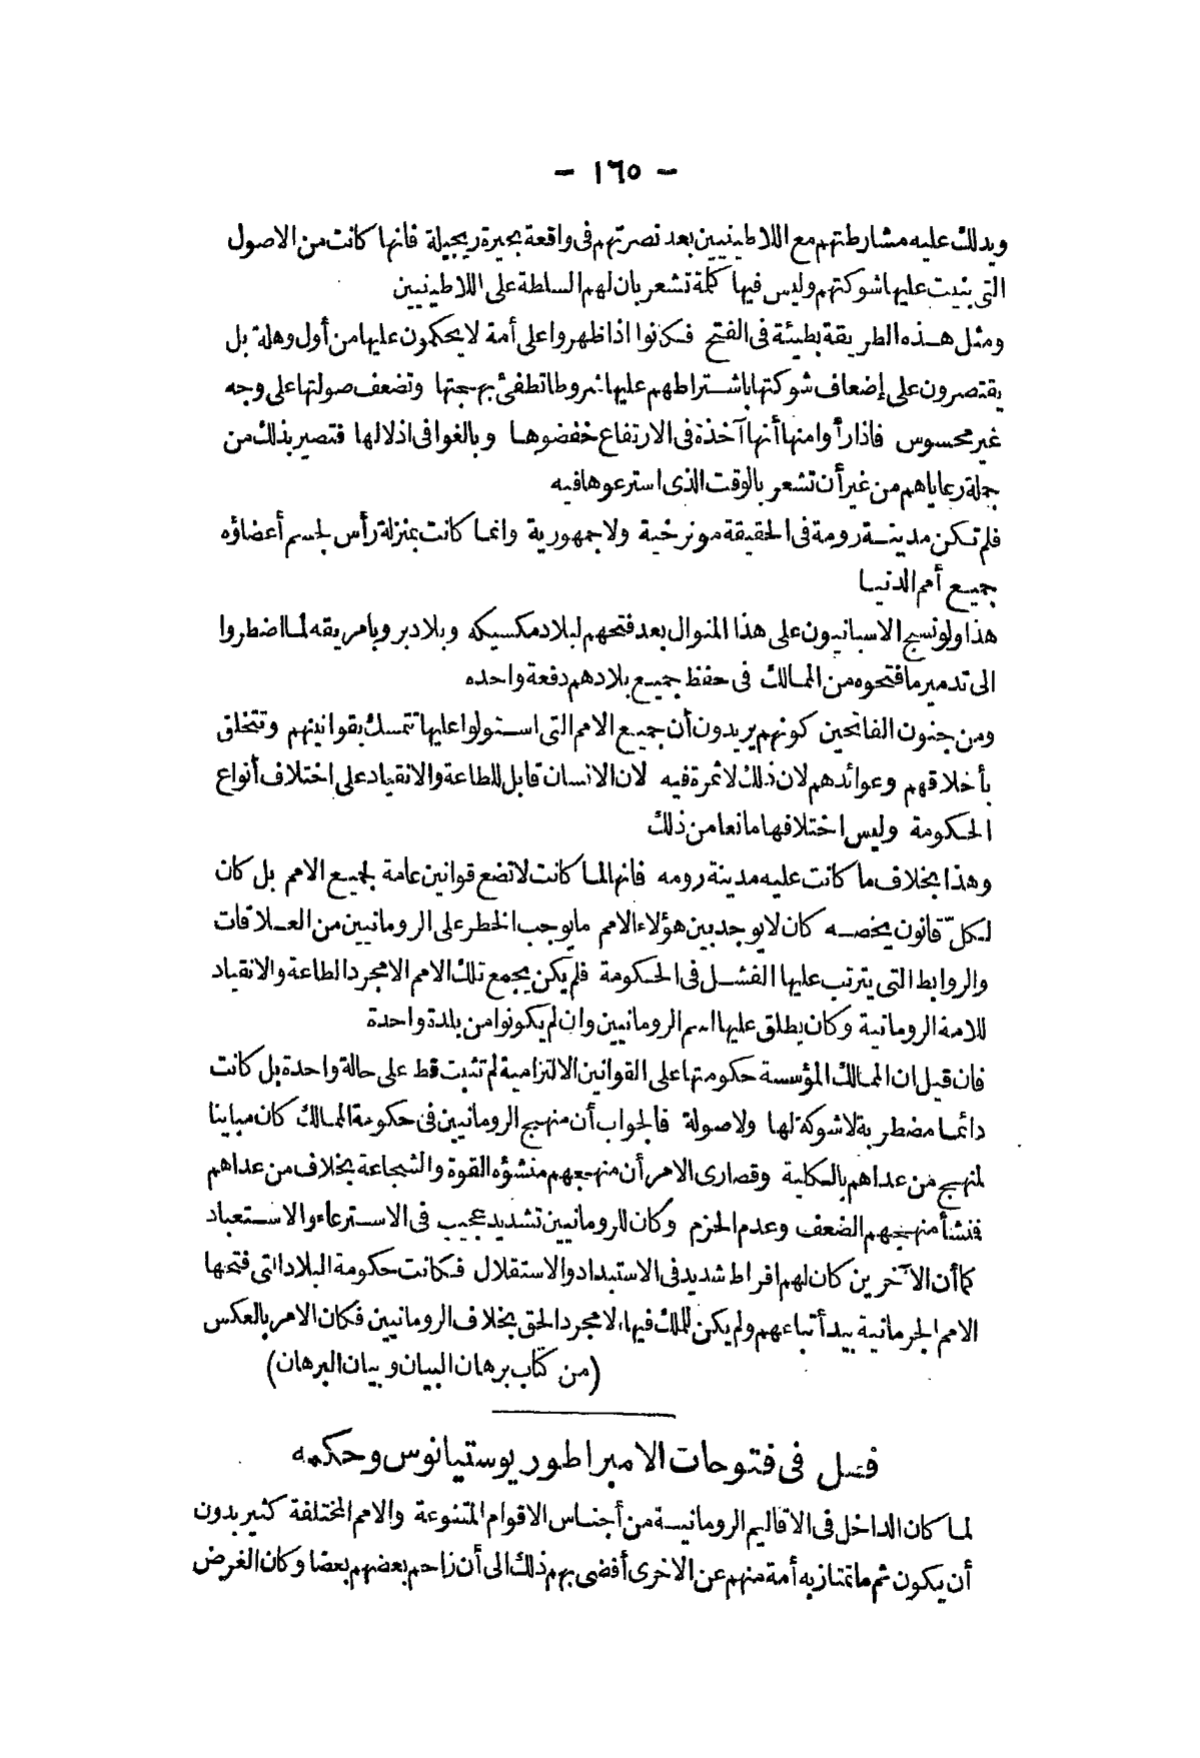 - ١٦٥ -
ويدلك عليه مشارطتهم مع اللاطينيين بعد نصرتهم فى واقعة بحيرة ريجيلة فانها كانت من الاصول
التى بنيت عليها شوكتهم وليس فيها كلمة تشعر بان لهم السلطة على اللاطينيين
ومثل هذه الطريقة بطيئة فى الفتح فكانوا اذا ظهروا على أمة لا يحكمون عليها من أول وهلة بل
يقتصرون على إضعاف شوكتها باشتراطهم عليها شروطا تطفئ بهجتها وتضعف صولتها على وجه
غير محسوس فاذا رأوا منها أنها آخذة فى الارتفاع خفضوها وبالغوا فى اذلالها فتصير بذلك من
جملة رعاياهم من غير أن تشعر بالوقت الذى استرعوها فيه
فلم تكن مدينة رومة فى الحقيقة مونرخية ولا جمهورية وانما كانت بمنزلة رأس لجسم أعضاؤه
جميع أمم الدنيا
هذا ولو نسج الاسبانيون على هذا المنوال بعد فتحهم لبلاد مكسيكه وبلاد برو بامريقه لما اضطروا
الى تدمير ما فتحوه من الممالك فى حفظ جميع بلادهم دفعة واحده
ومن جنون الفاتحين كونهم يريدون أن جميع الامم التى استولوا عليها تتمسك بقوانينهم وتتخلق
بأخلاقهم وعوائدهم لان ذلك لا ثمرة فيه لان الانسان قابل للطاعة والانقياد على اختلاف أنواع
الحكومة وليس اختلافها مانعا من ذلك
وهذا بخلاف ما كانت عليه مدينة رومه فانها لما كانت لا تضع قوانين عامة لجميع الامم بل كان
لكلّ قانون يخصه كان لا يوجد بين هؤلاء الامم ما يوجب الخطر على الرومانيين من العلاقات
والروابط التى يترتب عليها الفشل فى الحكومة فلم يكن يجمع تلك الامم الا مجرد الطاعة والانقياد
للامة الرومانية وكان يطلق عليها اسم الرومانيين وان لم يكونوا من بلدة واحدة
فان قيل ان الممالك المؤسسة حكومتها على القوانين الالتزامية لم تثبت قط على حالة واحدة بل كانت
دائما مضطربة لا شوكة لها ولا صولة فالجواب أن منهج الرومانيين فى حكومة الممالك كان مباينا
لمنهج من عداهم بالكلية وقصارى الامر أن منهجهم منشؤه القوة والشجاعة بخلاف من عداهم
فنشأ منهجهم الضعف وعدم الحزم وكان للرومانيين تشديد عجيب فى الاسترعاء والاستعباد
كما أن الآخرين كان لهم افراط شديد فى الاستبداد والاستقلال فكانت حكومة البلاد التى فتحها
الامم الجرمانية بيد أتباعهم ولم يكن للملك فيها الا مجرد الحق بخلاف الرومانيين فكان الامر بالعكس
(من كتاب برهان البيان وبيان البرهان)
فصل فى فتوحات الامبراطور يوستيانوس وحكمه
لما كان الداخل فى الاقاليم الرومانية من أجناس الاقوام المتنوعة والامم المختلفة كثير بدون
أن يكون ثم ما تمتاز به أمة منهم عن الاخرى أفضى بهم ذلك الى أن زاحم بعضهم بعضا وكان الغرض